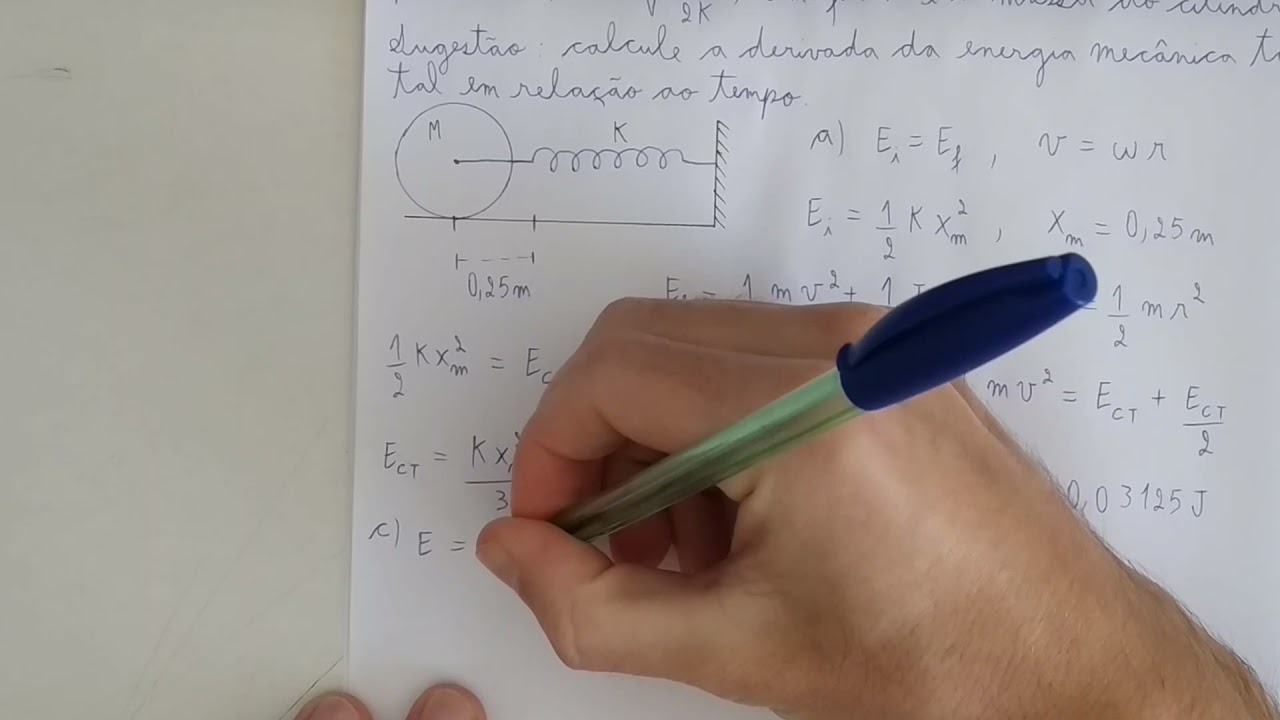 2K massa do cilindr
Sugestão: calcule a derivada da energia mecânica to
tal em relação ao tempo.
M K
0,25m
a) E_i = E_f , v = ωr
E_i = 1/2 K x_m^2 , X_m = 0,25m
1 m v^2 + 1 = 1/2 m r^2
1/2 K x_m^2 = E_C
m v^2 = E_CT + E_CT/2
E_CT = K x
3
0,03125J
c) E =